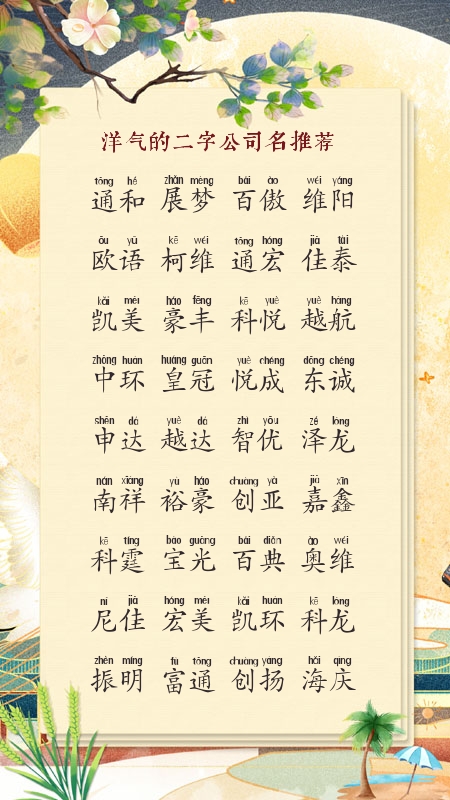 洋气的二字公司名推荐
tōng hé zhǎn mèng bǎi ào wéi yáng
通和 展梦 百傲 维阳
ōu yǔ kē wéi tōng hóng jiā tài
欧语 柯维 通宏 佳泰
kǎi měi háo fēng kē yuè yuè háng
凯美 豪丰 科悦 越航
zhōng huán huáng guān yuè chéng dōng chéng
中环 皇冠 悦成 东诚
shēn dá yuè dá zhì yōu zé lóng
申达 越达 智优 泽龙
nán xiáng yù háo chuàng yà jiā xīn
南祥 裕豪 创亚 嘉鑫
kē tíng bǎo guāng bǎi diǎn ào wéi
科霆 宝光 百典 奥维
ní jiā hóng měi kǎi huán kē lóng
尼佳 宏美 凯环 科龙
zhèn míng fù tōng chuàng yáng hǎi qìng
振明 富通 创扬 海庆